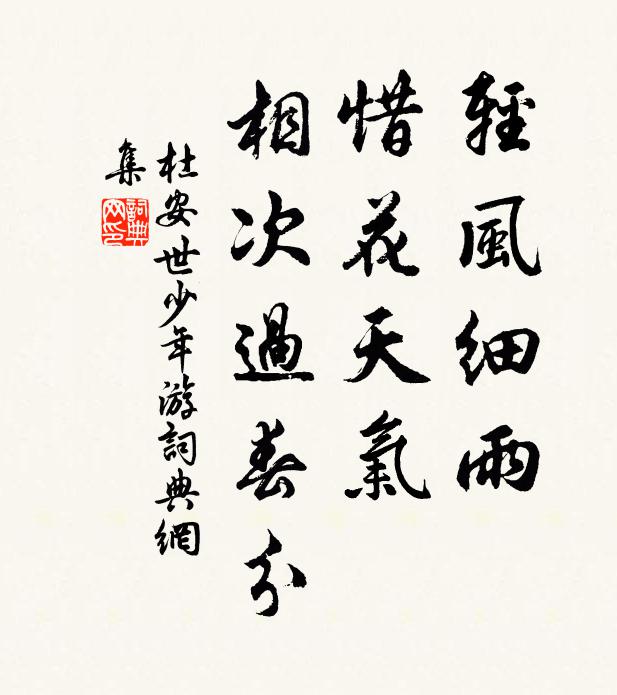 輕風細雨
惜花天氣
相次過春分
杜安世少年游詞典網
集
詞典
网印